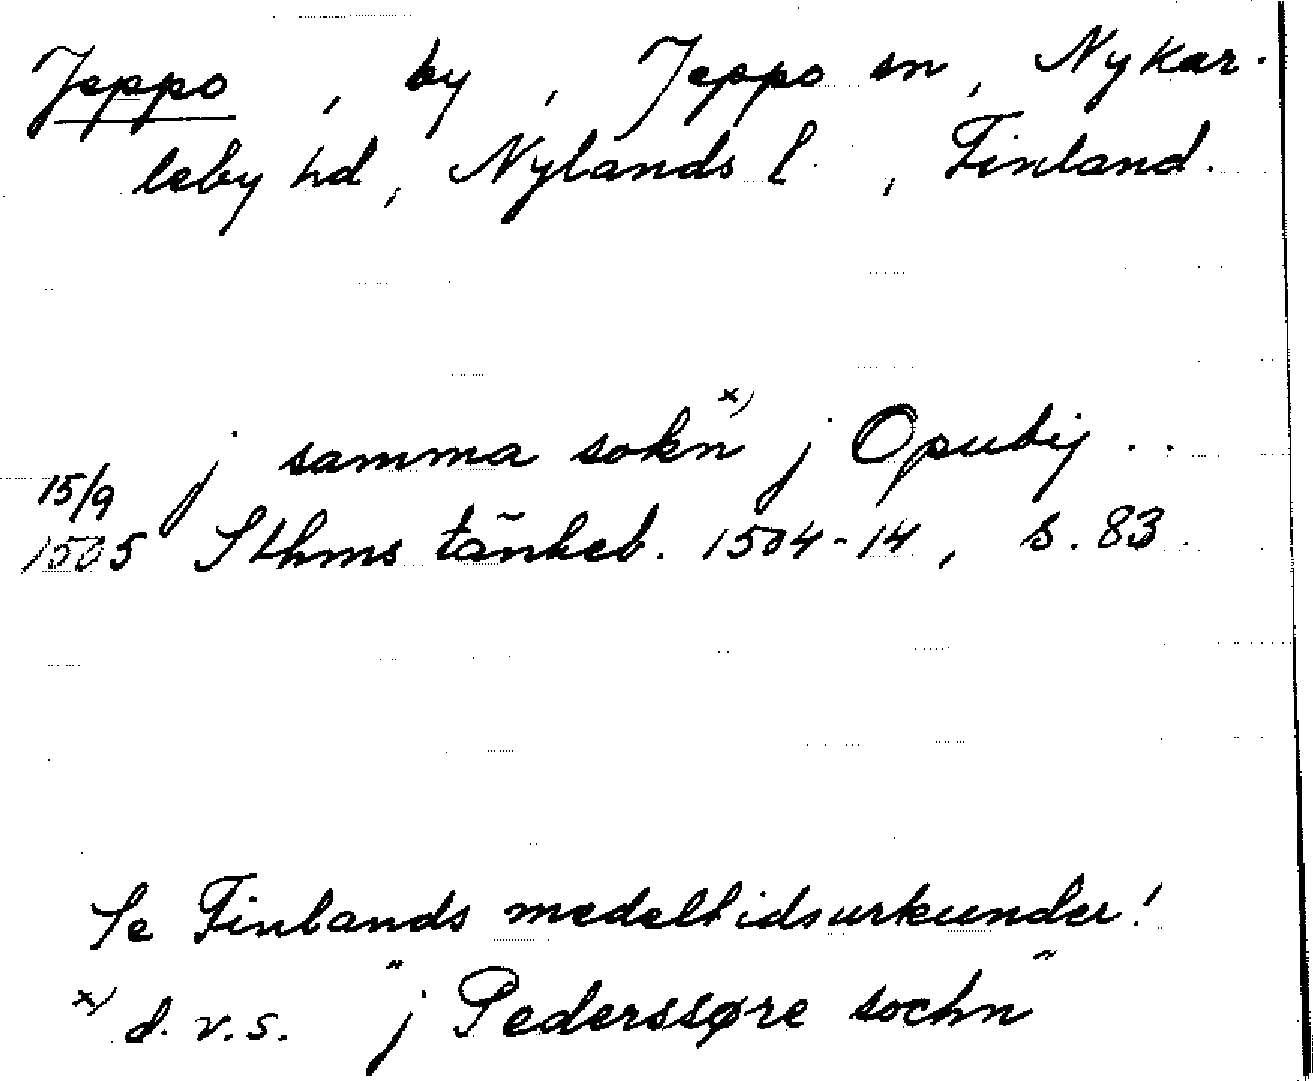 Jeppo, by, Jeppo sn, Nykar-
leby hd, Nylands l., Finland.
j samma sokn x) j Opubij ..
15/9
1505 Sthms tänkeb. 1504-14, s. 83.
Se Finlands medeltidsurkunder!
x) d.v.s. "j Pederssøre sochn"